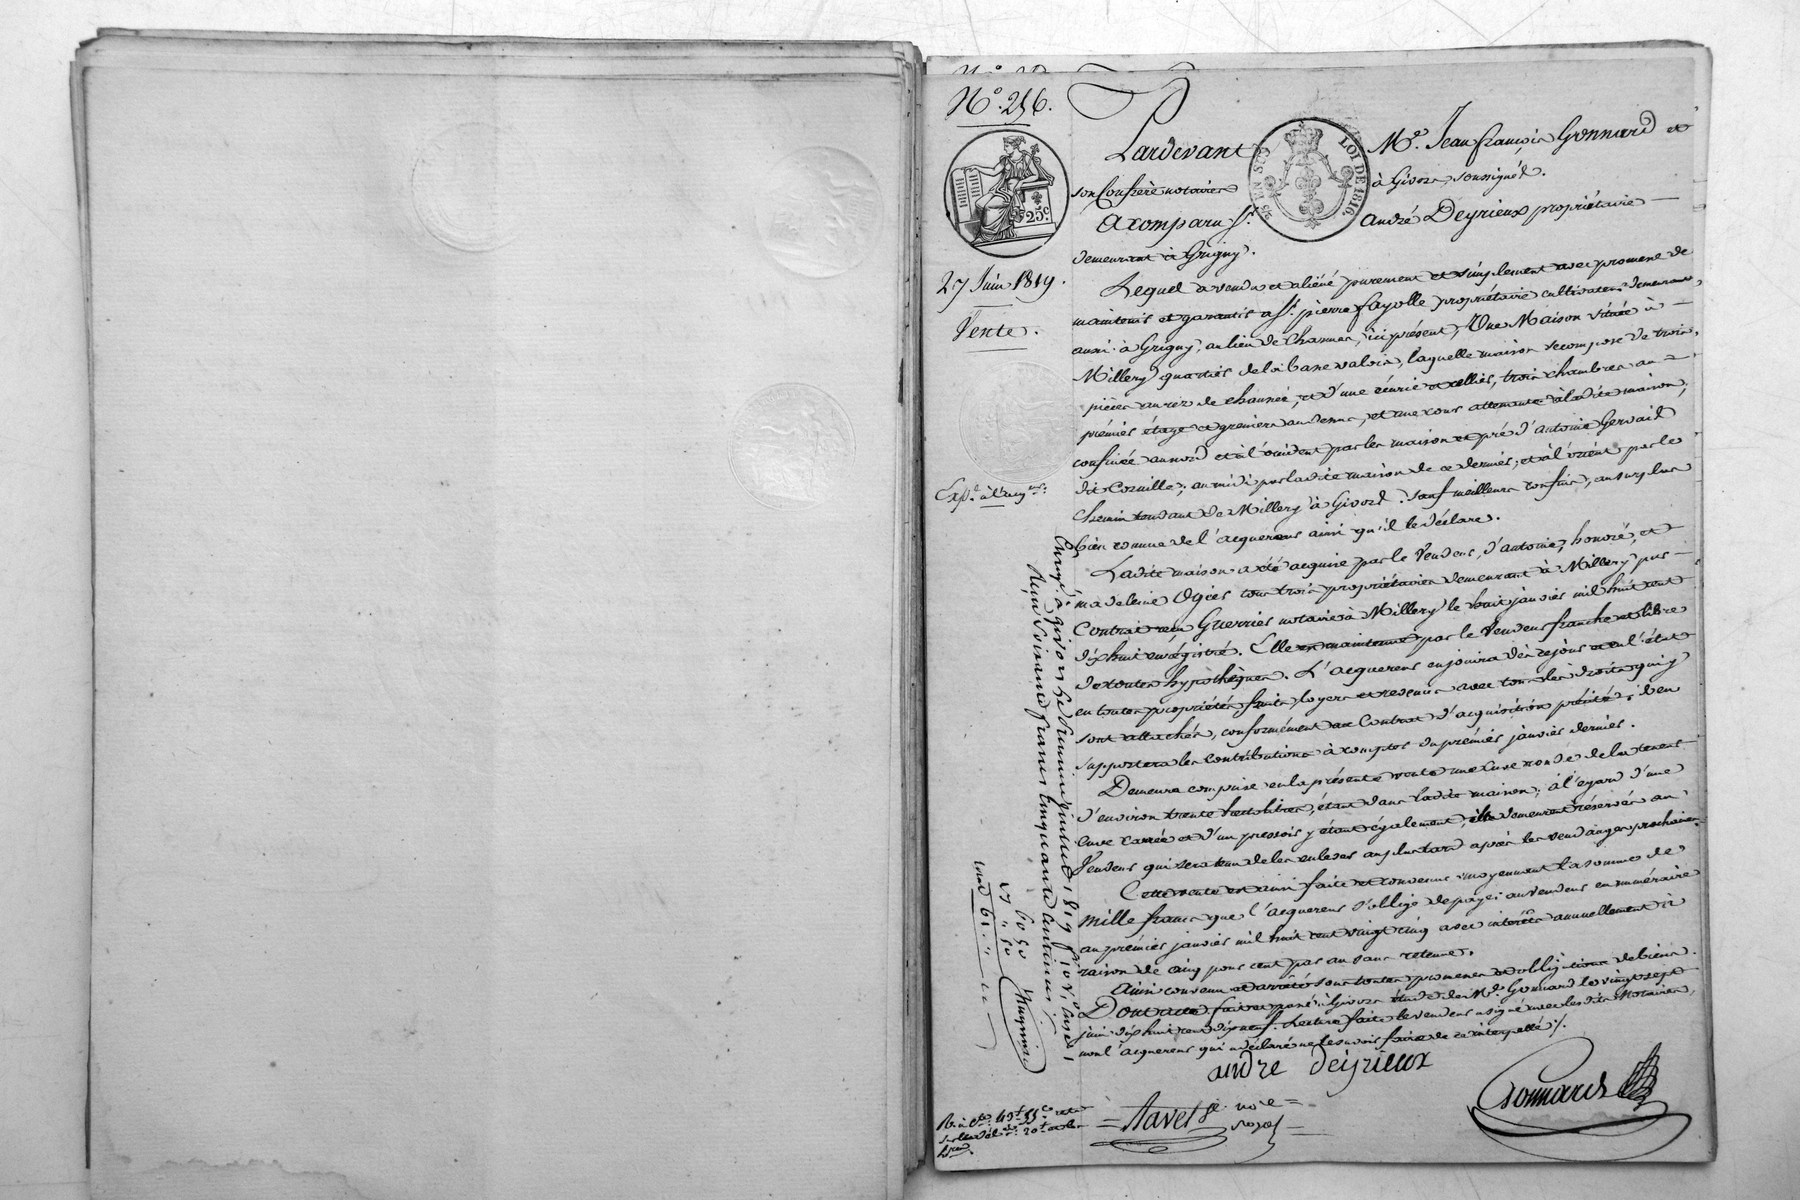 N.° 256.
25.c
27 Juin 1819.
Vente.
EN SUS
LOI DE 1816.
Pardevant M.e Jean françois Gonnard et
son Confrère notaires à Givors, soussignés.
a comparu s.r andré Deyrieux propriétaire
demeurant à Grigny.
Lequel a vendu et aliéné purement et simplement avec promesse de
maintenir et garantir à s.r pierre fayolle propriétaire cultivateur demeurant
aussi à Grigny, au lieu de Chasson, ici présent, Une Maison située à
Millery quartier de la basse valois, laquelle maison se compose de trois
pièces au rez de chaussée, et d'une écurie et cellier, trois chambres au
prémier étage et greniers au dessus, et une cour attenante à ladite maison,
confinée au nord et à l'occident par les maison et pré d'antoine Gervais
dit Cornille; au midi par ladite maison de ce dernier, et à l'orient par le
chemin tendant de Millery à Givors. Sauf meilleurs confins, au surplus
bien connue de l'acquereur ainsi qu'il le déclare.
Ladite maison a été acquise par le Vendeur, d'antoine, honoré, et
madeleine Ogier tous trois propriétaires demeurant à Millery par
Contrat reçu Guerrier notaire à Millery le huit janvier mil huit cent
dix huit enrégistré. Elle est maintenue par le Vendeur franche et libre
de toutes hypothèques. L'acquereur en jouira dès ce jour et en l'état
en toutes propriétés fruits, loyers et revenus avec tous les droits qui y
sont attachés, conformément au Contrat d'acquisition précité; il en
supportera les Contributions à compter du prémier janvier dernier.
Demeure comprise en la présente vente une cuve ronde de la teneur
d'environ trente hectolitres, étant dans ladite maison; à l'égard d'une
cuve carrée et d'un pressoir y étant également, ils demeurent réservés au
Vendeur qui sera tenu de les enlever au plus tard après les vendanges prochaines.
Cette vente est ainsi faite et convenue moyennant la somme de
Mille francs que l'acquereur s'oblige de payer au vendeur en numéraire
au prémier janvier mil huit cent vingt cinq avec intérêts annuellement à
raison de cinq pour cent par an sans retenue.
Ainsi convenu et arrêté sous toutes promesses et obligations de biens.
Dont acte, fait et passé à Givors étude de M.e Gonnard le vingt sept
juin dix huit cent dix neuf. Lecture faite le vendeur a signé avec lesdits Notaires,
non l'acquereur qui a déclaré ne le savoir faire de ce interpellé.
andre deyrieux
Gonnard
Enregé. à givors le trente juin 1819
Reçu soixante francs cinquante centimes
60 50